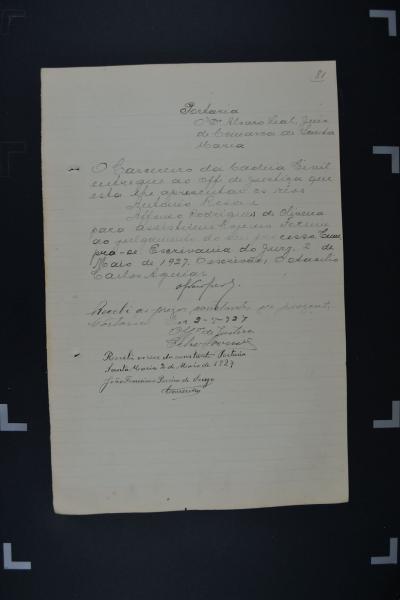 81
Portaria
O Dr. Alvaro Leal, Juiz
de Comarca de Santa
Maria
O Carcereiro da Cadeia Civil
entregue ao Off. de Justiça que
esta lhe apresentar os réos
Antonio Rosa
Affonso Rodrigues de Oliveira
para assistirem hoje no Forum
ao julgamento do seu processo. Cum
pra-se. Escrivania do Jury, 2 de
Maio de 1927. O escrivão,
Carlos Aguiar
Recebi os prezos constantes da presente
Portaria Em 2-5-927
Off. de Justiça
Recebi os reos da constante Portaria
Santa Maria 2 de Maio de 1927
João Francisco Pereira de
Carcereiro